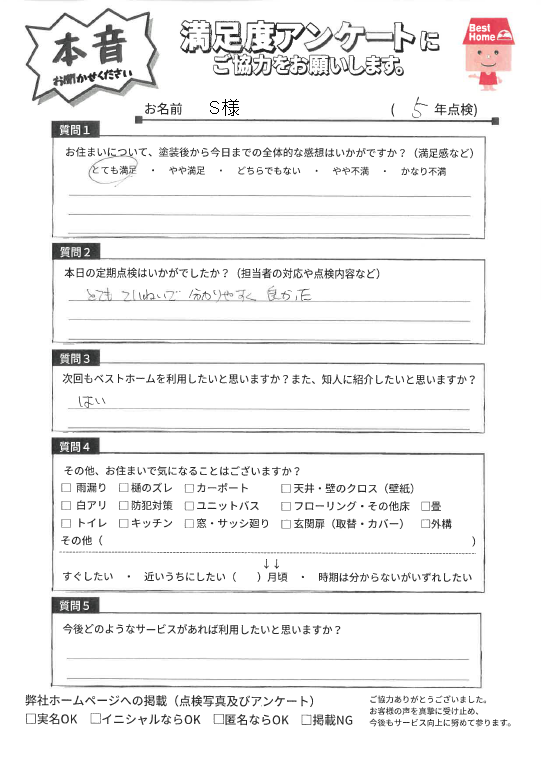 本音
お聞かせください
満足度アンケートに
ご協力をお願いします。
Best
Home
お名前 S様 ( 5 年点検)
質問1
お住まいについて、塗装後から今日までの全体的な感想はいかがですか?(満足感など)
とても満足 ・ やや満足 ・ どちらでもない ・ やや不満 ・ かなり不満
質問2
本日の定期点検はいかがでしたか?(担当者の対応や点検内容など)
とても ていねいで 分かりやすく 良かった
質問3
次回もベストホームを利用したいと思いますか?また、知人に紹介したいと思いますか?
はい
質問4
その他、お住まいで気になることはございますか?
□ 雨漏り □ 樋のズレ □ カーポート □ 天井・壁のクロス(壁紙)
□ 白アリ □ 防犯対策 □ ユニットバス □ フローリング・その他床 □畳
□ トイレ □ キッチン □ 窓・サッシ廻り □ 玄関扉(取替・カバー) □外構
その他( )
↓↓
すぐしたい ・ 近いうちにしたい( )月頃 ・ 時期は分からないがいずれしたい
質問5
今後どのようなサービスがあれば利用したいと思いますか?
弊社ホームページへの掲載(点検写真及びアンケート)
□実名OK □イニシャルならOK □匿名ならOK □掲載NG
ご協力ありがとうございました。
お客様の声を真摯に受け止め、
今後もサービス向上に努めて参ります。